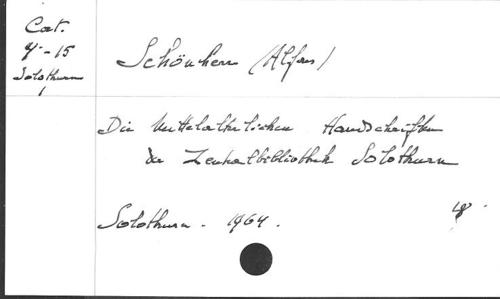 Cat.
4-15
Solothurn
1
Schönherr (Alfons)
Die Mittelalterlichen Handschriften
der Zentralbibliothek Solothurn
Solothurn - 1964.
18